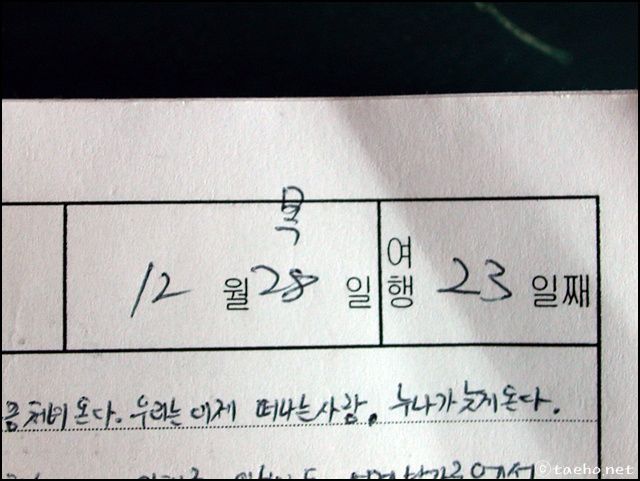 목
12 월 28 일 여행 23 일째
온다. 우리는 이제 떠나는 사람. 누나가 늦게 온다.
에서
© taeho.net